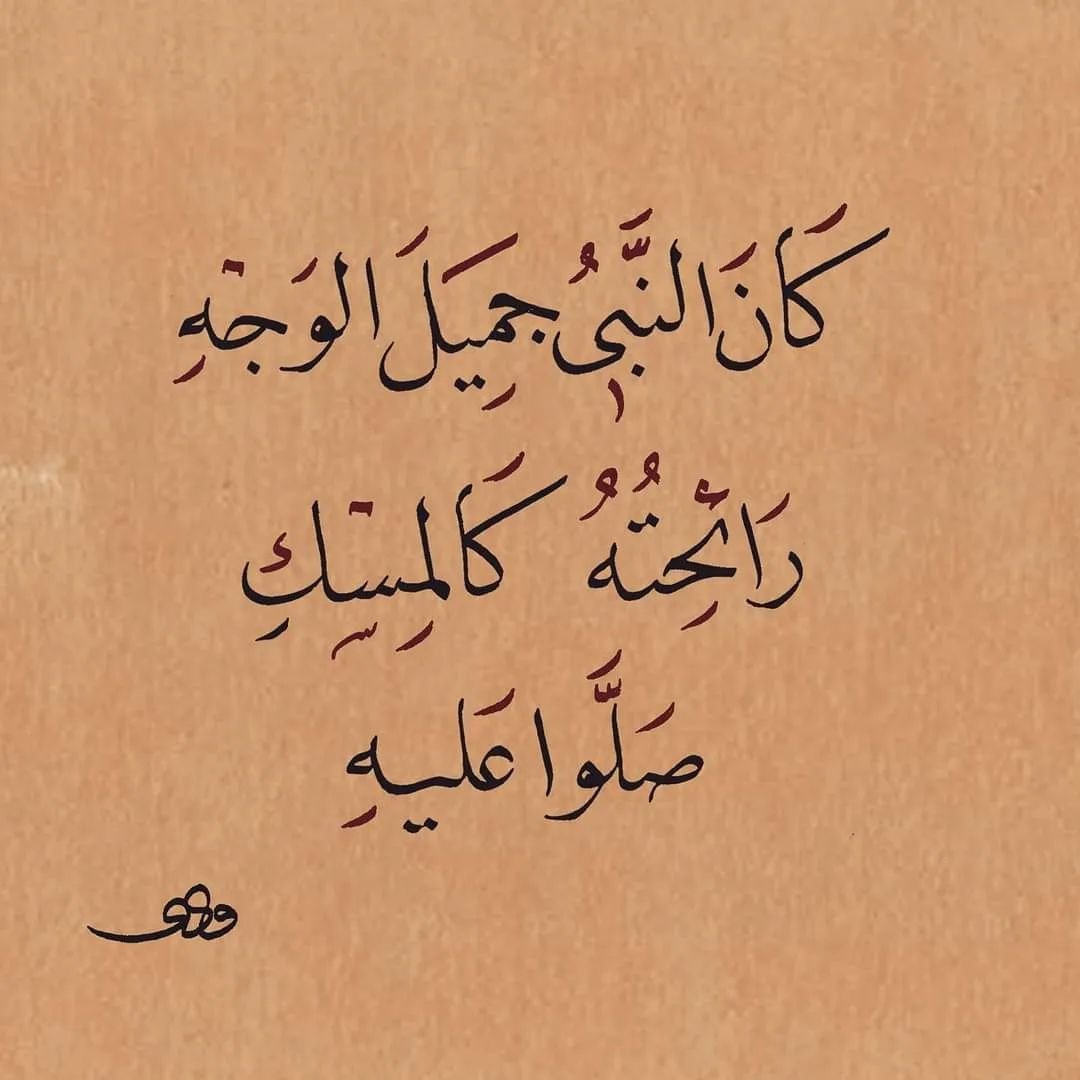 كَانَ النَّبِىُّ جَمِيلَ الوَجْهِ
رَائِحِتُهُ كَالمِسْكِ
صَلَّوا عَليهِ